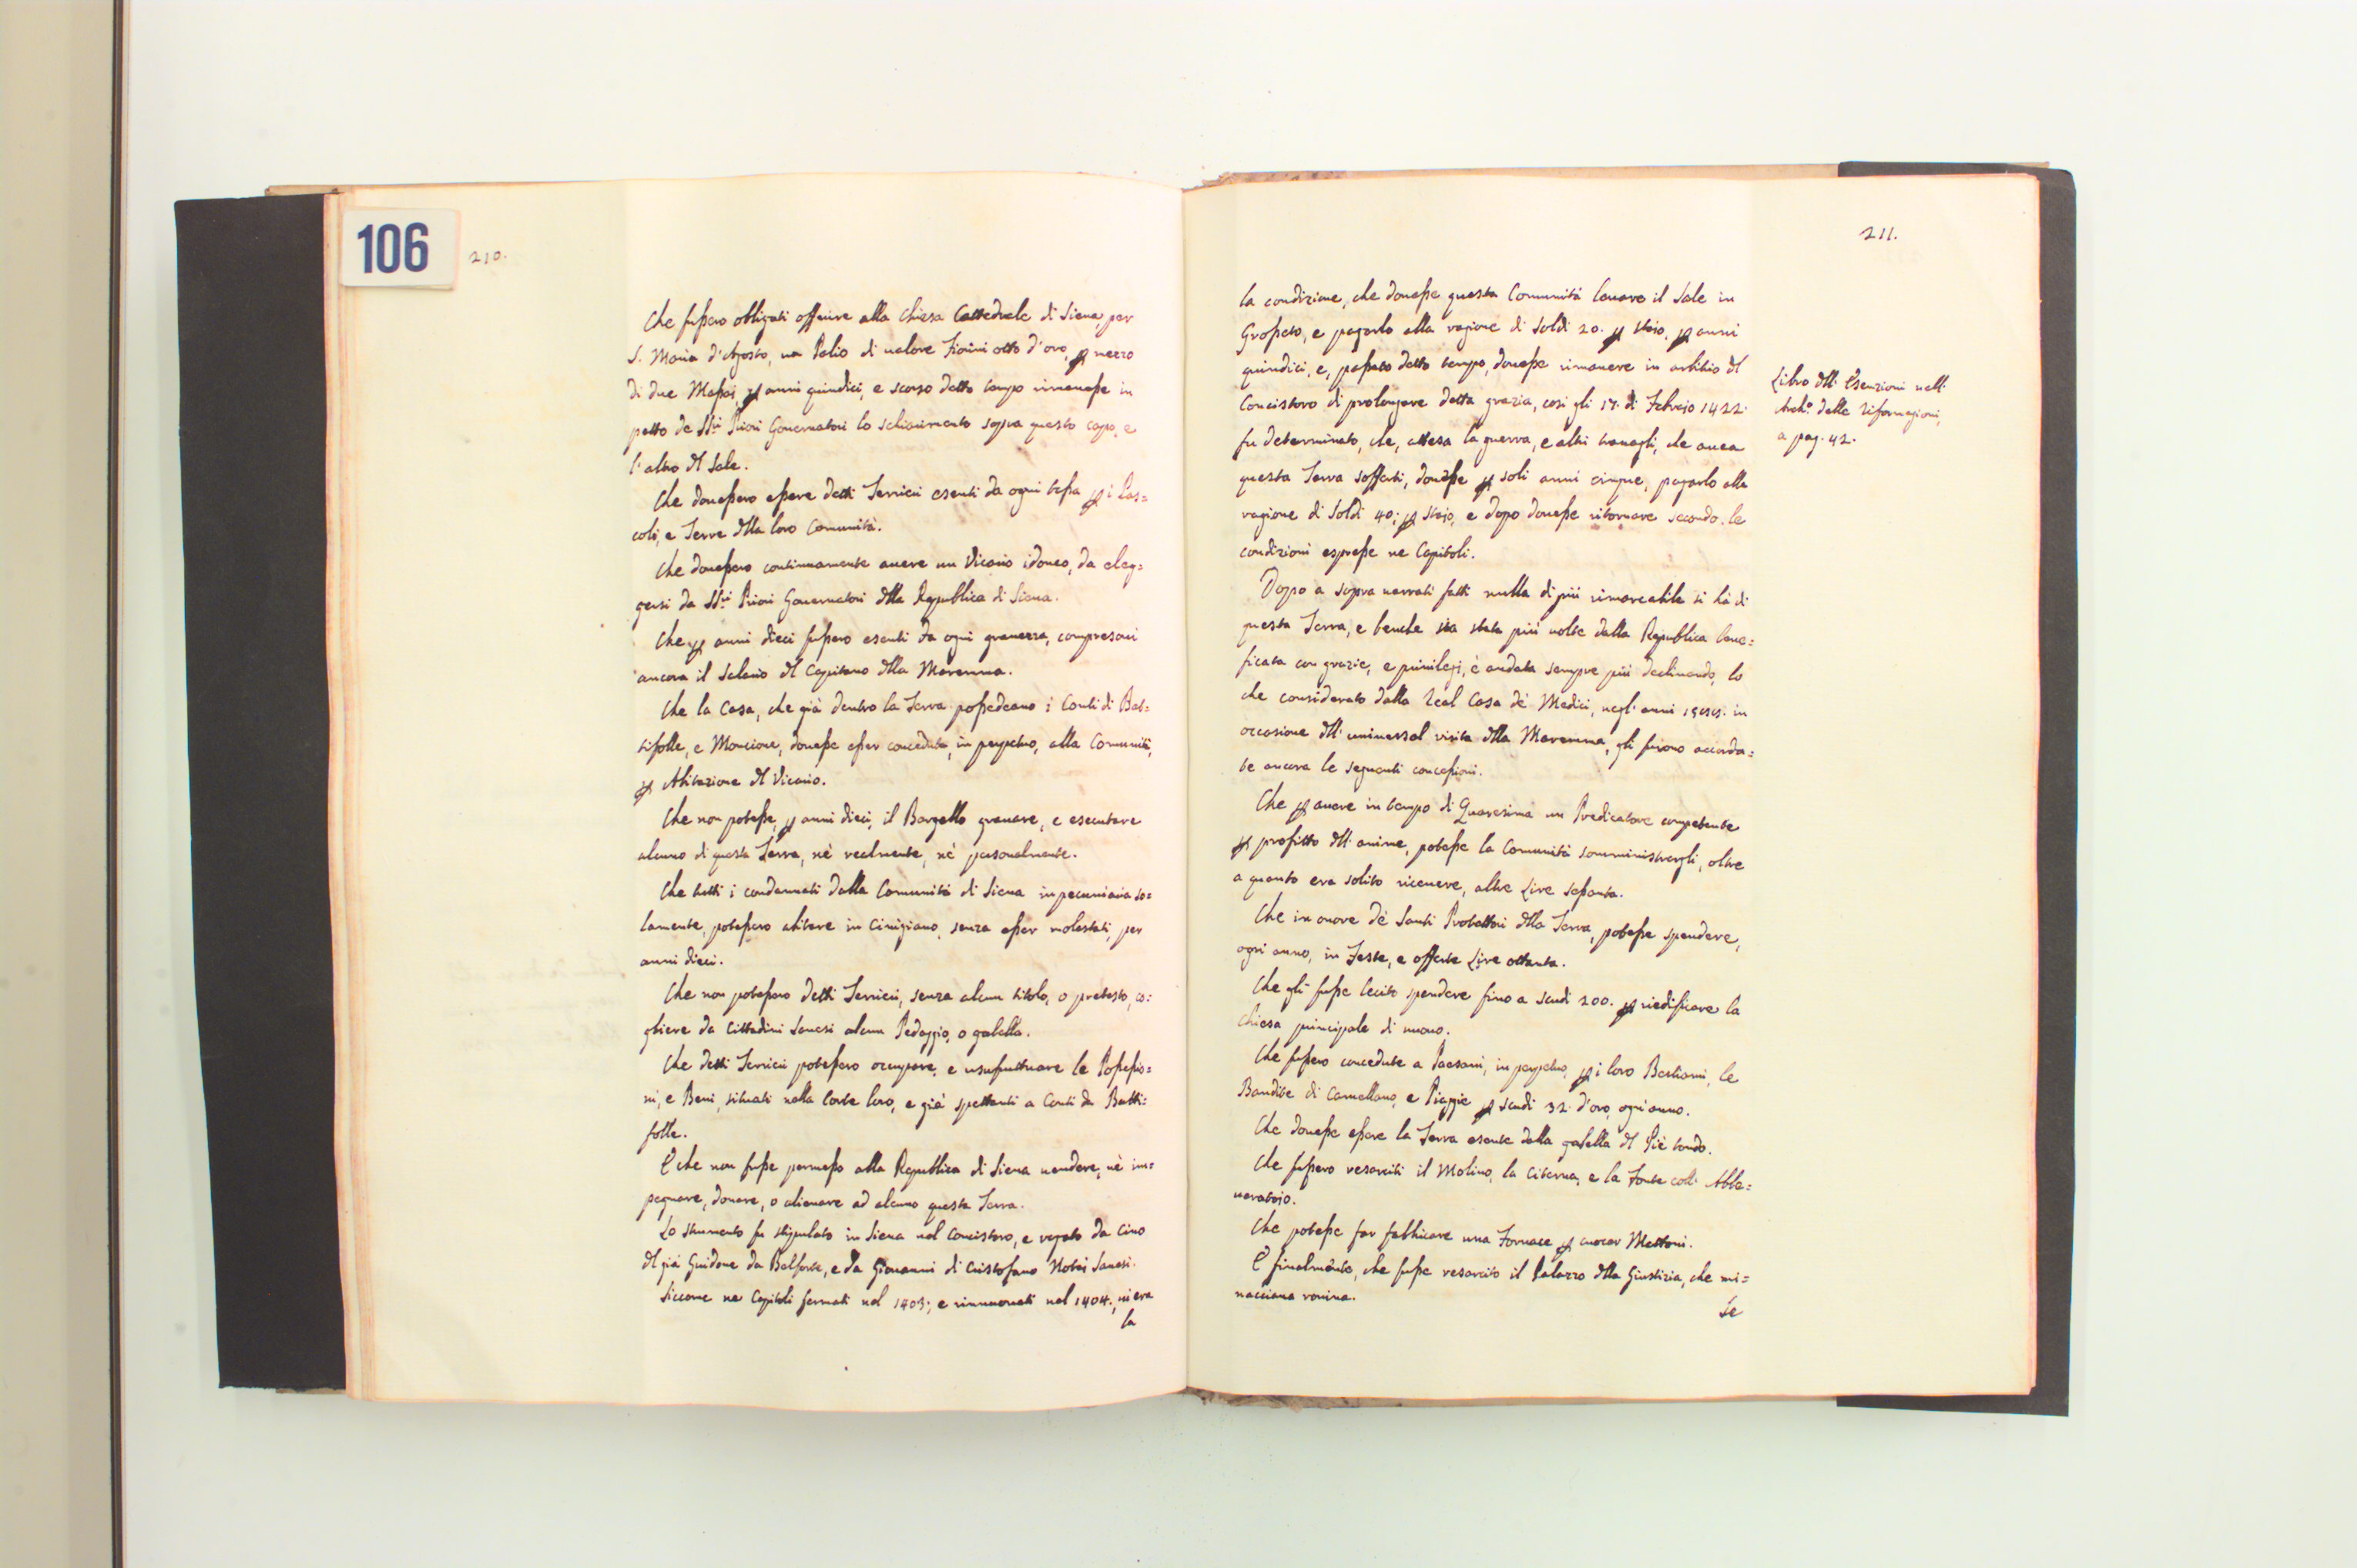 106
210.
Che fussero obbligati offerire alla Chiesa Cattedrale di Siena, per
S. Maria d'Agosto, un Palio di ualore Fiorini otto d'oro, p mezzo
di due Massai, p anni quindici, e scorso detto tempo rimanesse in
petto de SS.ri Priori Gouernatori lo schiarimento sopra questo capo, e
l'altro dl Sale.
Che douessero essere detti Terrieri esenti da ogni tassa p i Pas=
coli, e Terre dlla loro Comunità.
Che douessero continuamente auere un Vicario idoneo, da eleg=
gersi da SS.ri Priori Gouernatori dlla Repubblica di Siena.
Che p anni dieci fussero esenti da ogni grauezza, compresoui
ancora il Salario dl Capitano dlla Maremma.
Che la Casa, che già dentro la Terra possedeano i Conti di Bat=
tifolle, e Moncione, douesse esser conceduta, in perpetuo, alla Comunità,
p Abitazione dl Vicario.
Che non potesse, p anni dieci, il Bargello grauare, e esecutare
alcuno di questa Terra, nè realmente, nè personalmente.
Che tutti i condannati dalla Comunità di Siena in pecuniaria so=
lamente, potessero abitare in Cinigiano, senza esser molestati, per
anni dieci.
Che non potessero detti Terrieri, senza alcun titolo, o pretesto, co=
gliere da Cittadini Sanesi alcun Pedaggio, o gabella.
Che detti Terrieri potessero occupare, e usufruttuare le Possessio=
ni, e Beni, situati nella Corte loro, e già spettanti a Conti da Batti=
folle.
E che non fusse permesso alla Repubblica di Siena uendere, nè im=
pegnare, donare, o alienare ad alcuno questa Terra.
Lo strumento fu stipulato in Siena nel Concistoro, e rogato da Cino
dl già Guidone da Belforte, e da Giouanni di Cristofano Notai Sanesi.
Siccome ne Capitoli fermati nel 1403; e rinnuouati nel 1404., ui era
la
211.
la condizione, che douesse questa Comunità leuare il Sale in
Grosseto, e pagarlo alla ragione di Soldi 20. p staio, p anni
quindici, e, passato detto tempo, douesse rimanere in arbitrio dl
Concistoro di prolungare detta grazia, così gli 17. di Febraio 1422.
fu determinato, che, attesa la guerra, e altri trauagli, che auea
questa Terra sofferti, douesse p soli anni cinque, pagarlo alla
ragione di Soldi 40; p staio, e dopo douesse ritornare secondo le
condizioni espresse ne Capitoli.
Libro dll' Esenzioni nell'
Arch.o delle Riformagioni,
a pag. 42.
Dopo a sopra narrati fatti nulla di più rimarcabile si hà di
questa Terra, e benche sia stata più uolte dalla Repubblica bene=
ficata con grazie, e priuilegi, è andata sempre più declinando, lo
che considerato dalla Real Casa de' Medici, negl' anni in
occasione dll' uniuersal visita dlla Maremma, gli furono accorda=
te ancora le seguenti concessioni.
Che p auere in tempo di Quaresima un Predicatore competente
p profitto dll' anime, potesse la Comunità somministrargli, oltre
a quanto era solito riceuere, altre Lire sessanta.
Che in onore de' Santi Protettori dlla Terra, potesse spendere,
ogni anno, in Feste, e offerte Lire ottanta.
Che gli fusse lecito spendere fino a scudi 200. p riedificare la
Chiesa principale di nuouo.
Che fussero concedute a Paesani, in perpetuo, p i loro Bestiami, le
Bandite di Camellano, e Piaggie p scudi 32. d'oro, ogni anno.
Che douesse essere la Terra esente dalla gabella dl Piè tondo.
Che fussero resarciti il Molino, la Citerna, e la Fonte coll' Abbe=
ueratoio.
Che potesse far fabbricare una Fornace p cuocer Mattoni.
E finalmente, che fusse resarcito il Palazzo dlla Giustizia, che mi=
nacciaua rouina.
Se